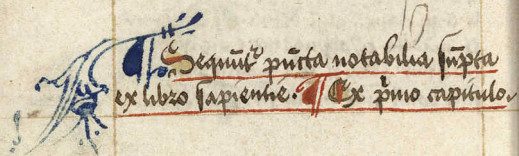 ¶ Sequūt͛ pūcta notabilia sūpta
ex libro sapientie. ¶ Ex p̄mo capitulo.